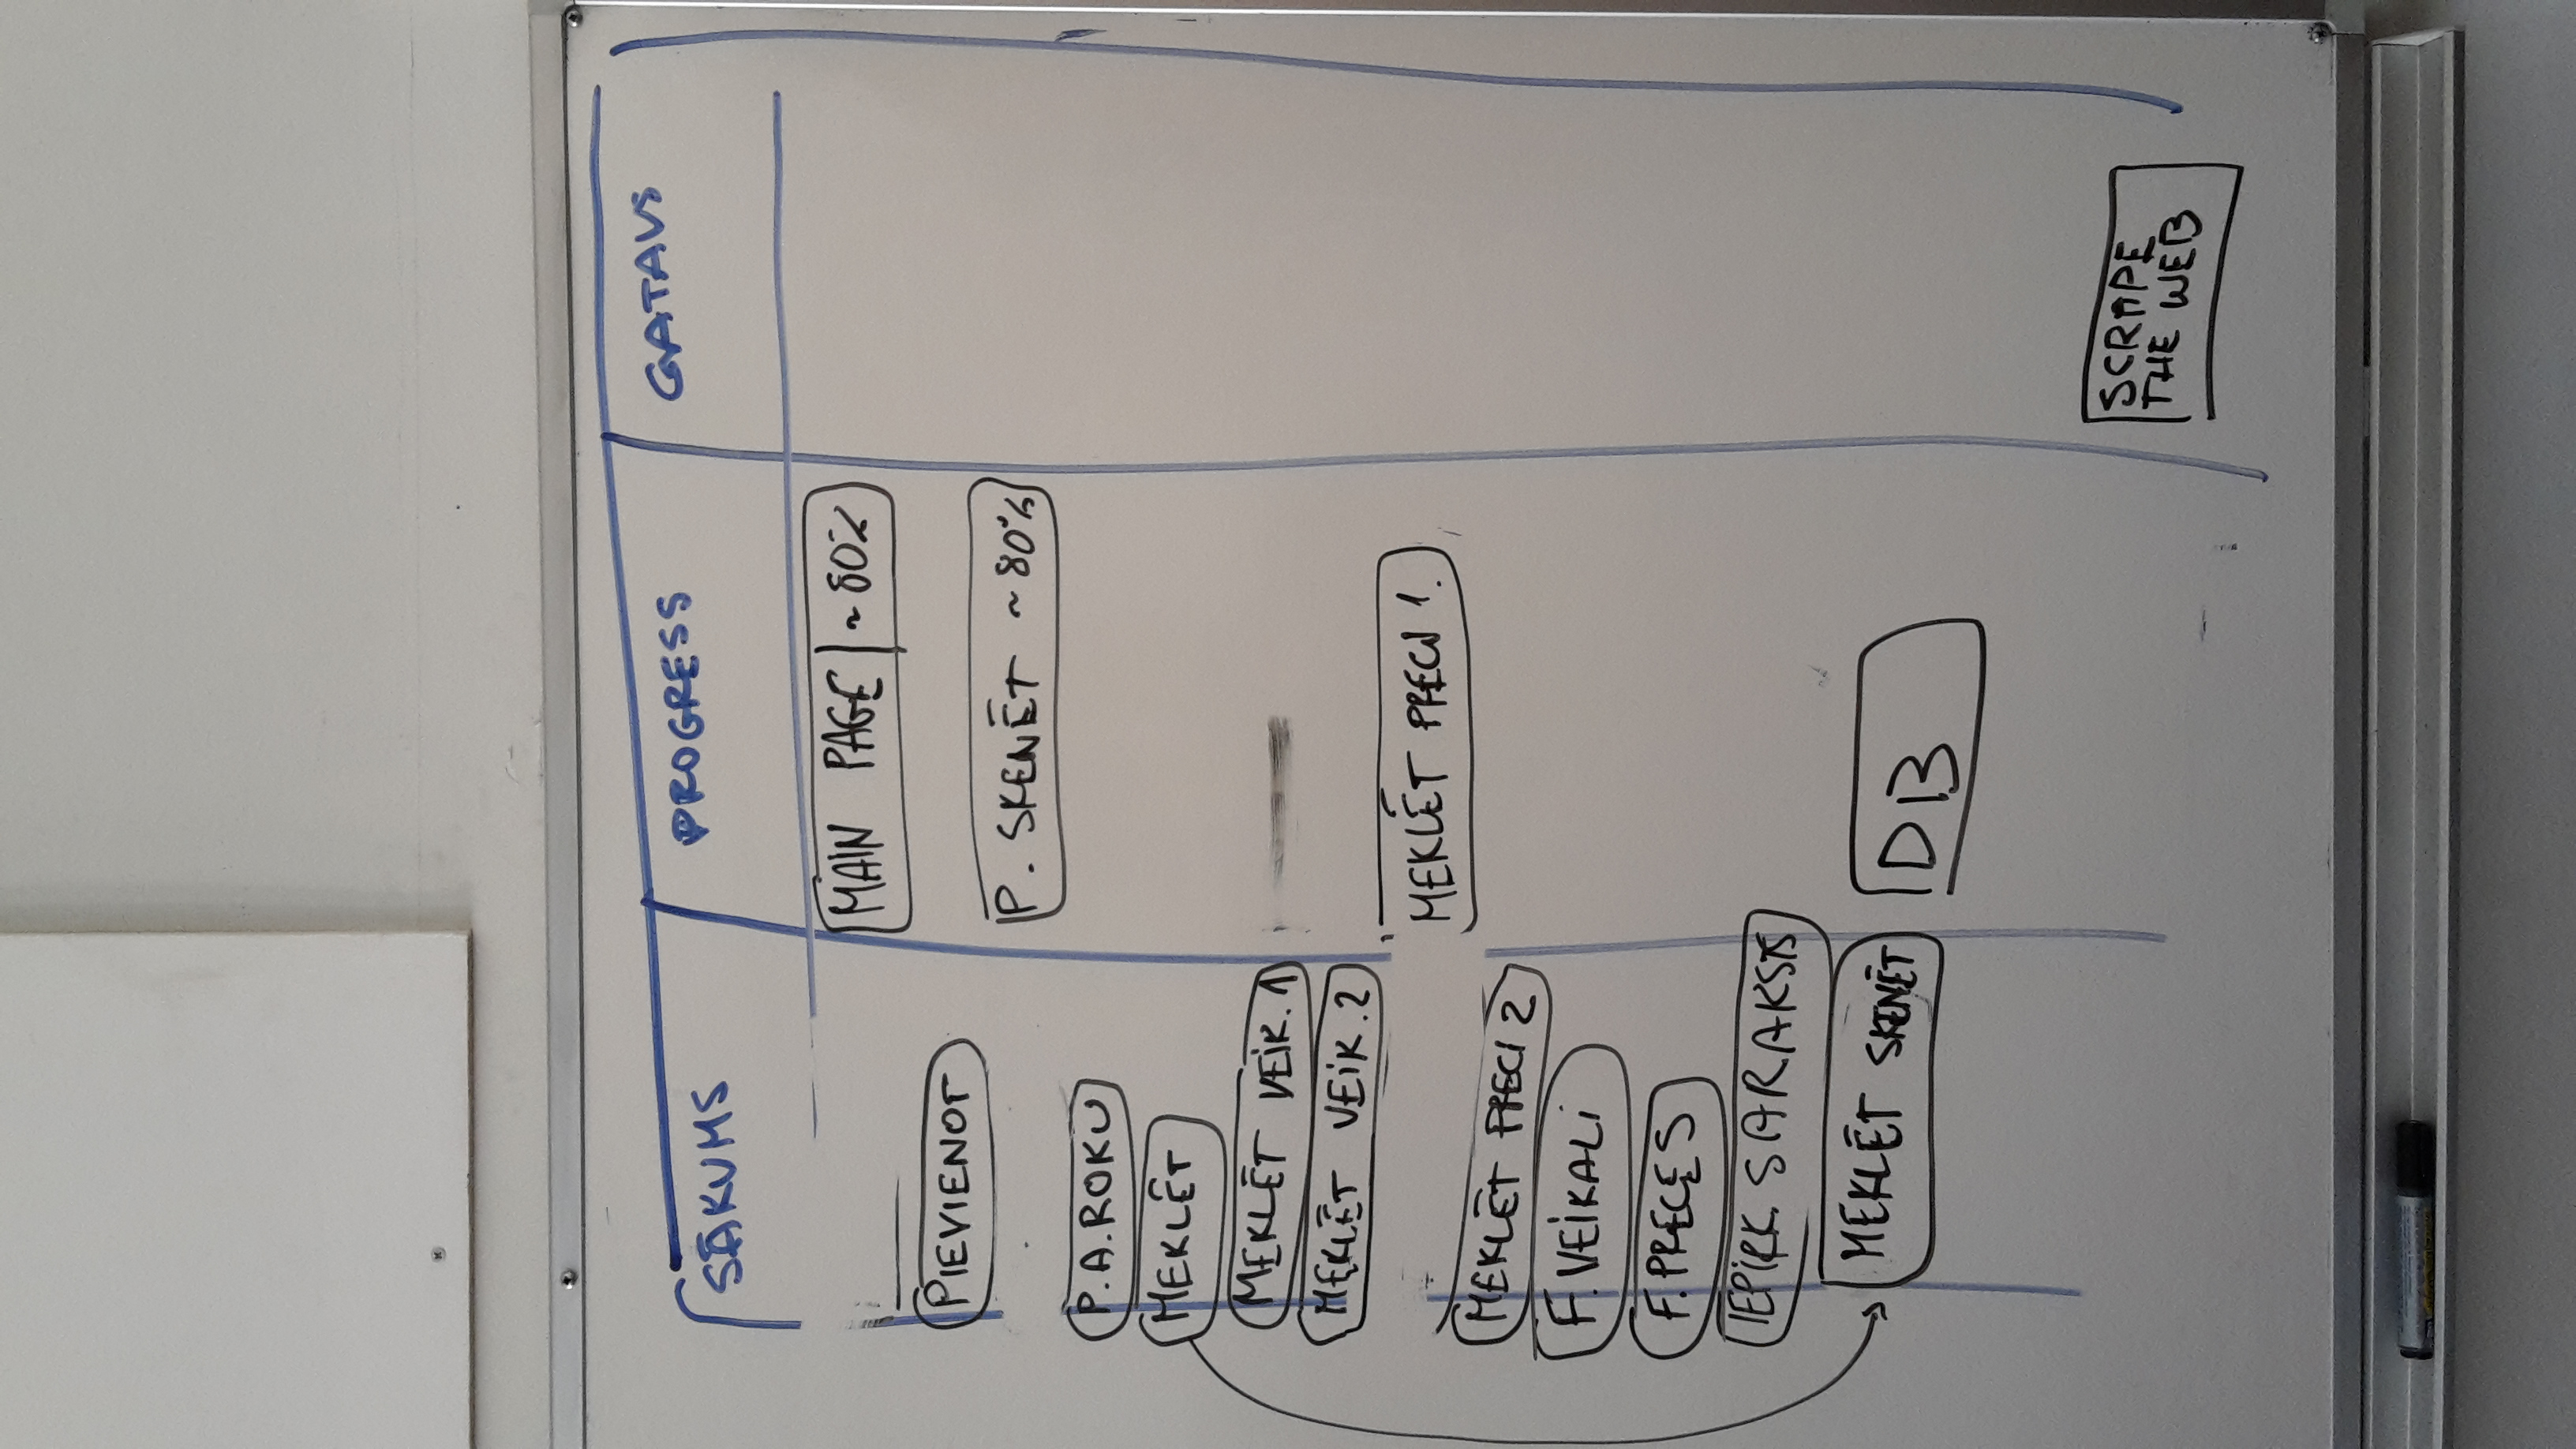 SĀKUMS
PROGRESS
GATAVS
MAIN PAGE | ~80%
PIEVIENOT
P. SKENĒT ~80%
P.A.ROKU
MEKLĒT
MEKLĒT VEIK.1
MEKLĒT VEIK.2
MEKLĒT PRECI 1.
MEKLĒT PRECI 2
F.VEIKALI
F.PRECES
IEPIRK. SARAKSTS
MEKLĒT SKENĒT
DB
SCRAPE
THE WEB